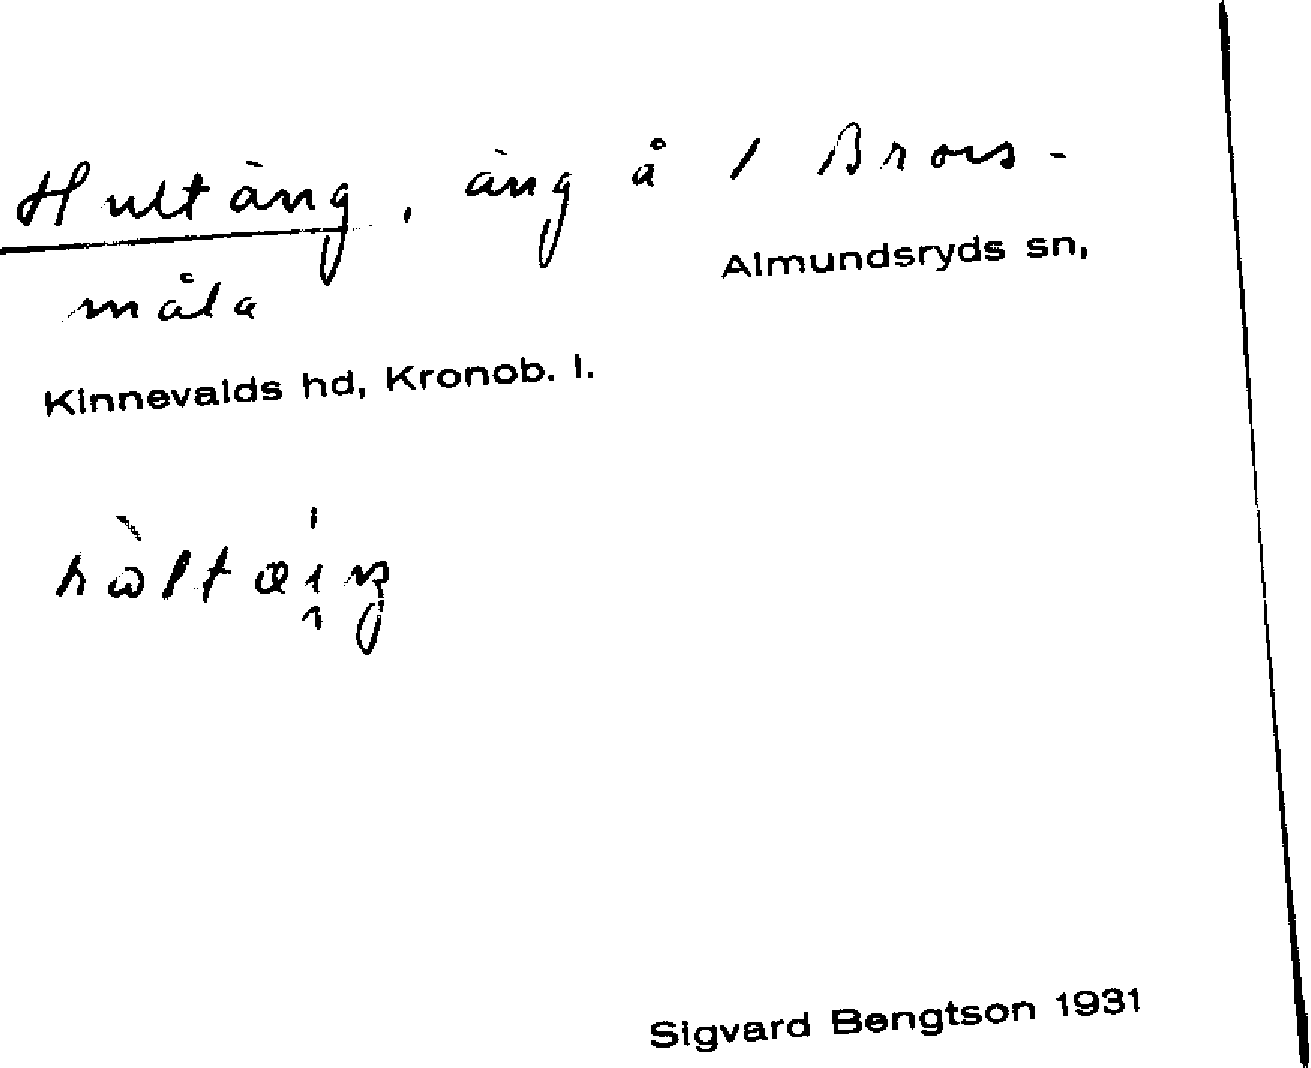 Hultäng, äng å 1 Brors-
Almundsryds sn,
måla
Kinnevalds hd, Kronob. l.
Sigvard Bengtson 1931